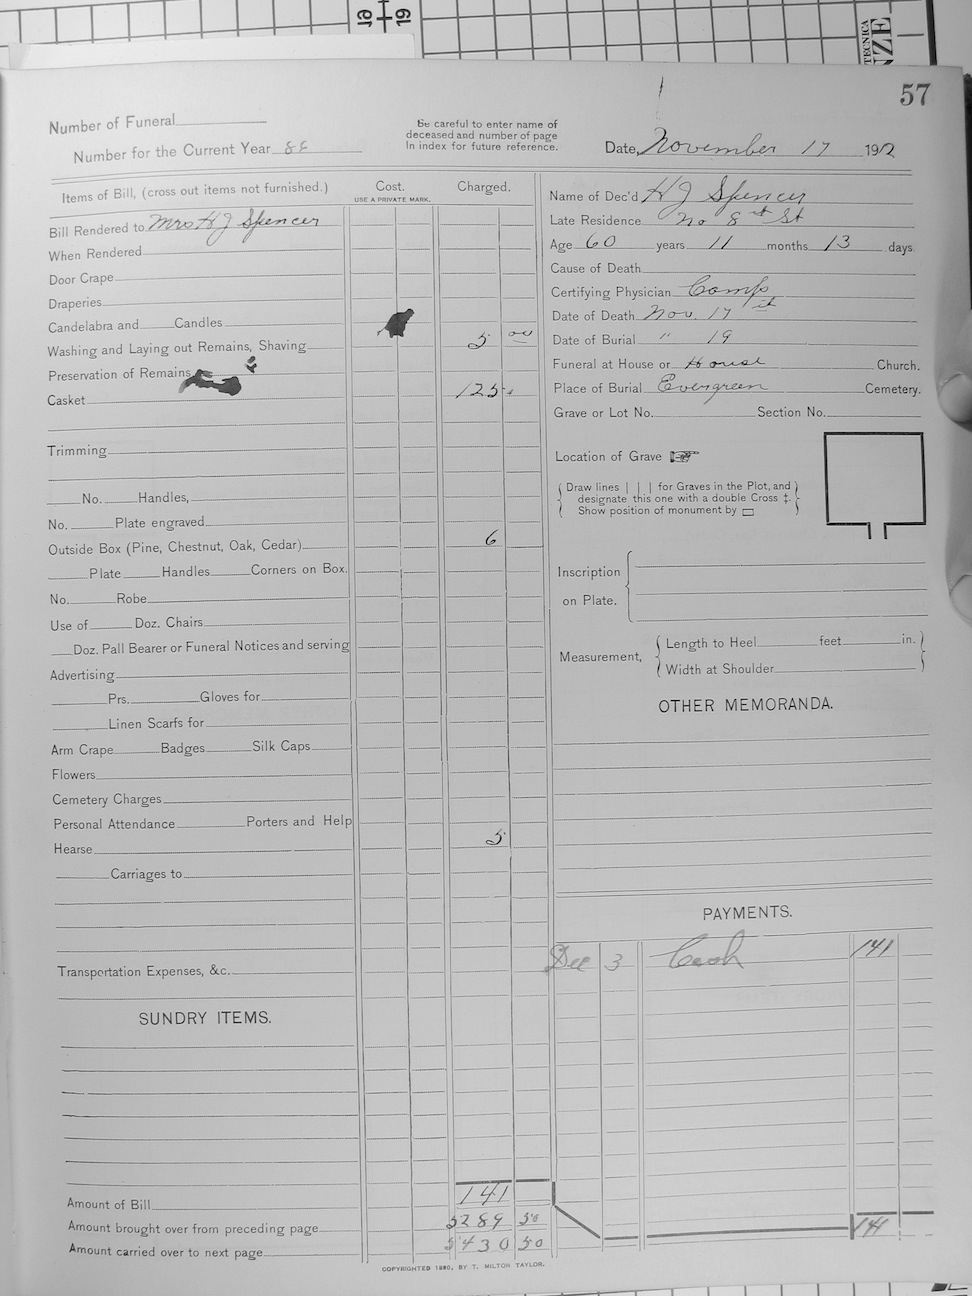 19
TECNICA
57
Number of Funeral
Be careful to enter name of
deceased and number of page
in index for future reference.
Number for the Current Year 88
Date, November 17 1912
Items of Bill, (cross out items not furnished.)
Cost.
USE A PRIVATE MARK.
Charged.
Bill Rendered to Mrs H J Spencer
When Rendered
Door Crape
Draperies
Candelabra and Candles
Washing and Laying out Remains, Shaving 5 00
Preservation of Remains
Casket 125
Trimming
No. Handles,
No. Plate engraved
Outside Box (Pine, Chestnut, Oak, Cedar) 6
Plate Handles Corners on Box.
No. Robe
Use of Doz. Chairs
Doz. Pall Bearer or Funeral Notices and serving
Advertising
Prs. Gloves for
Linen Scarfs for
Arm Crape Badges Silk Caps
Flowers
Cemetery Charges
Personal Attendance Porters and Help
Hearse 5
Carriages to
Transportation Expenses, &c.
SUNDRY ITEMS.
Amount of Bill 141
Amount brought over from preceding page 5289 50
Amount carried over to next page 5430 50
Name of Dec'd H J Spencer
Late Residence No 8th St
Age 60 years 11 months 13 days
Cause of Death
Certifying Physician Camp
Date of Death Nov. 17th
Date of Burial " 19
Funeral at House or House Church.
Place of Burial Evergreen Cemetery.
Grave or Lot No. Section No.
Location of Grave ☞
Draw lines | | | for Graves in the Plot, and
designate this one with a double Cross ‡.
Show position of monument by ▭
Inscription
on Plate.
Measurement,
Length to Heel feet in.
Width at Shoulder
OTHER MEMORANDA.
PAYMENTS.
Dec 3 Cash 141
141
COPYRIGHTED 1880, BY T. MILTON TAYLOR.